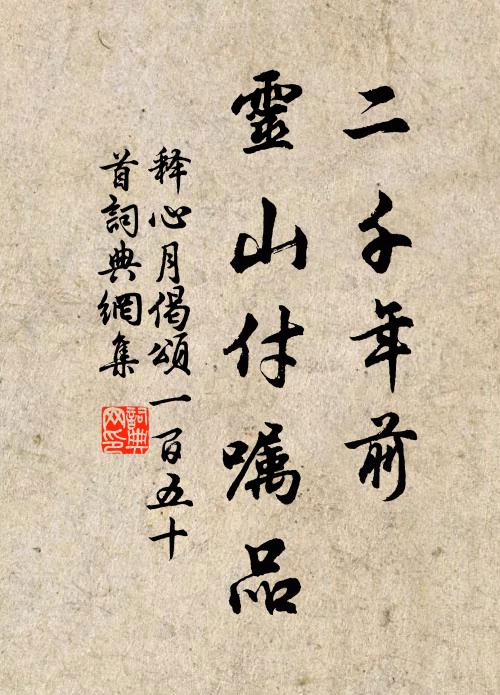 二千年前
靈山付嘱品
释心月偈頌一百五十
首詞典網集
詞典
网印